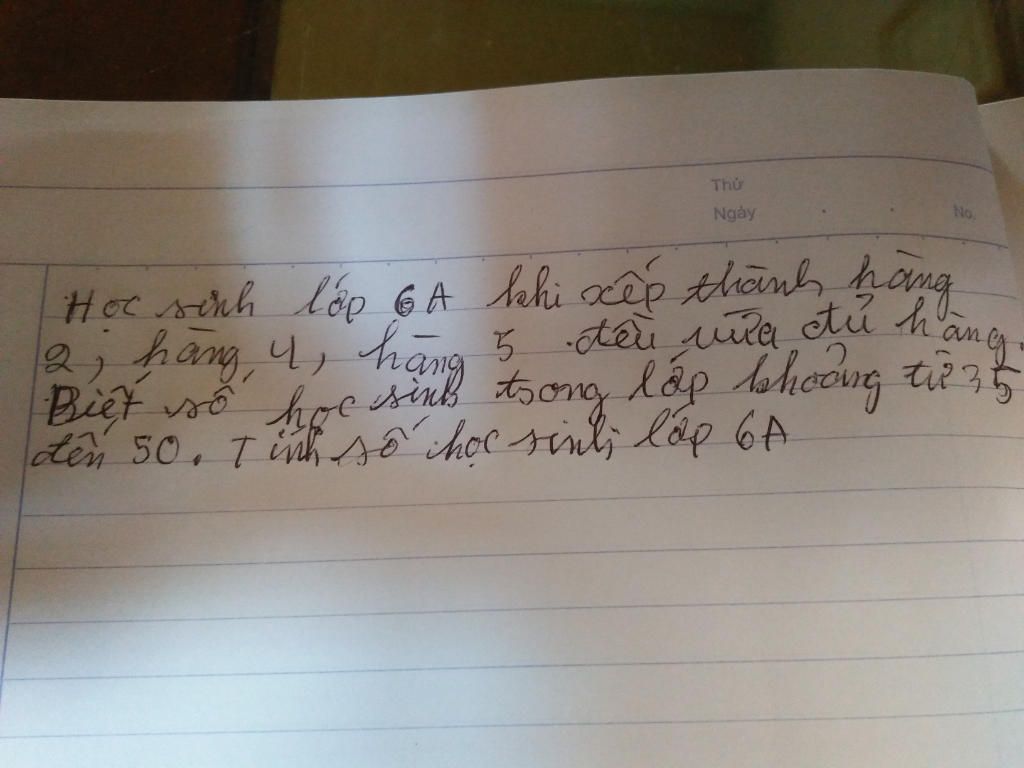 Thứ
Ngày
No.
Học sinh lớp 6A khi xếp thành hàng
2, hàng 4, hàng 5 đều vừa đủ hàng.
Biết số học sinh trong lớp khoảng từ 35
đến 50. Tính số học sinh lớp 6A